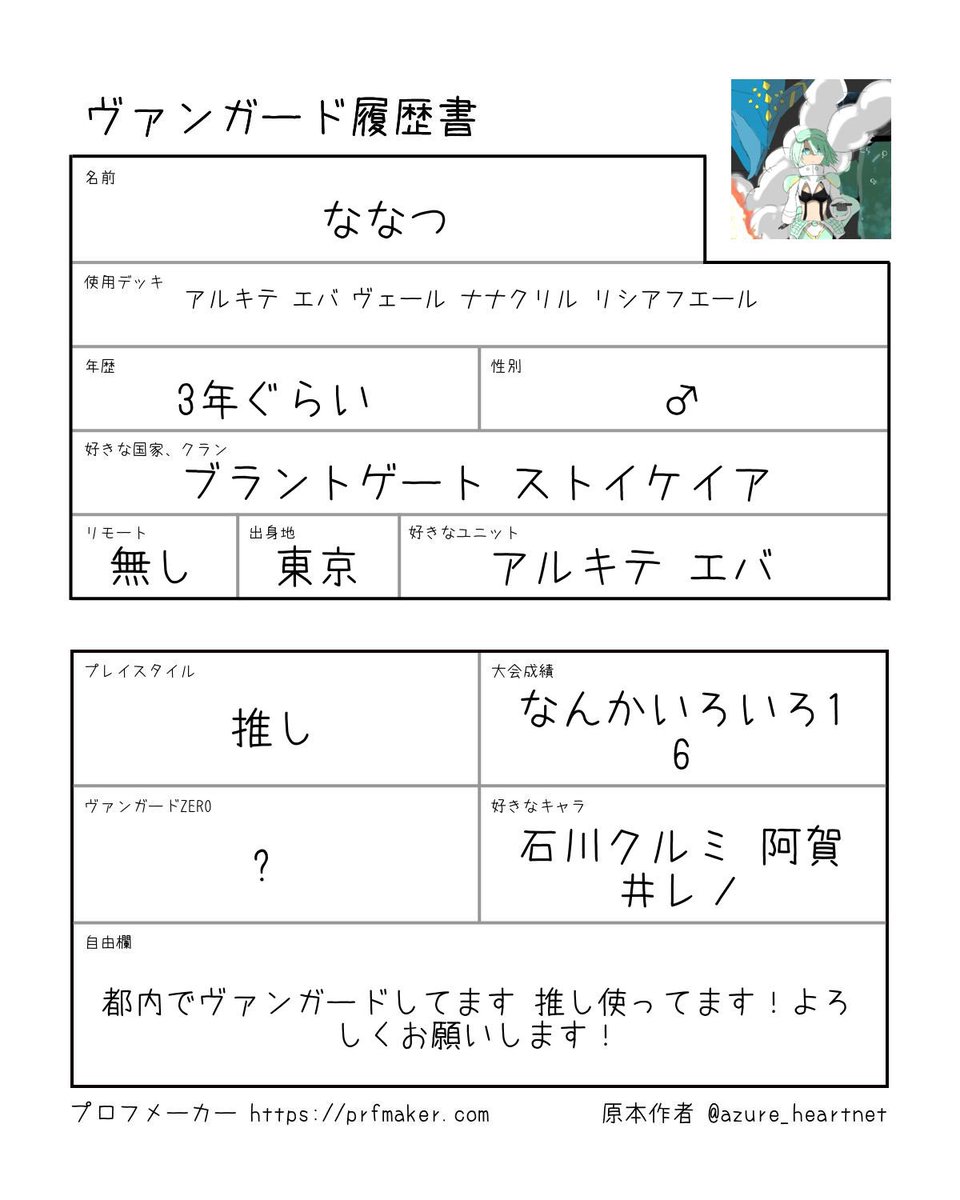 ヴァンガード履歴書
名前
ななつ
使用デッキ
アルキテ エバ ヴェール ナナクリル リシアフエール
年歴
3年ぐらい
性別
♂
好きな国家、クラン
ブラントゲート ストイケイア
リモート
無し
出身地
東京
好きなユニット
アルキテ エバ
プレイスタイル
推し
大会成績
なんかいろいろ1
6
ヴァンガードZERO
?
好きなキャラ
石川クルミ 阿賀
井レノ
自由欄
都内でヴァンガードしてます 推し使ってます!よろ
しくお願いします!
プロフメーカー https://prfmaker.com
原本作者 @azure_heartnet